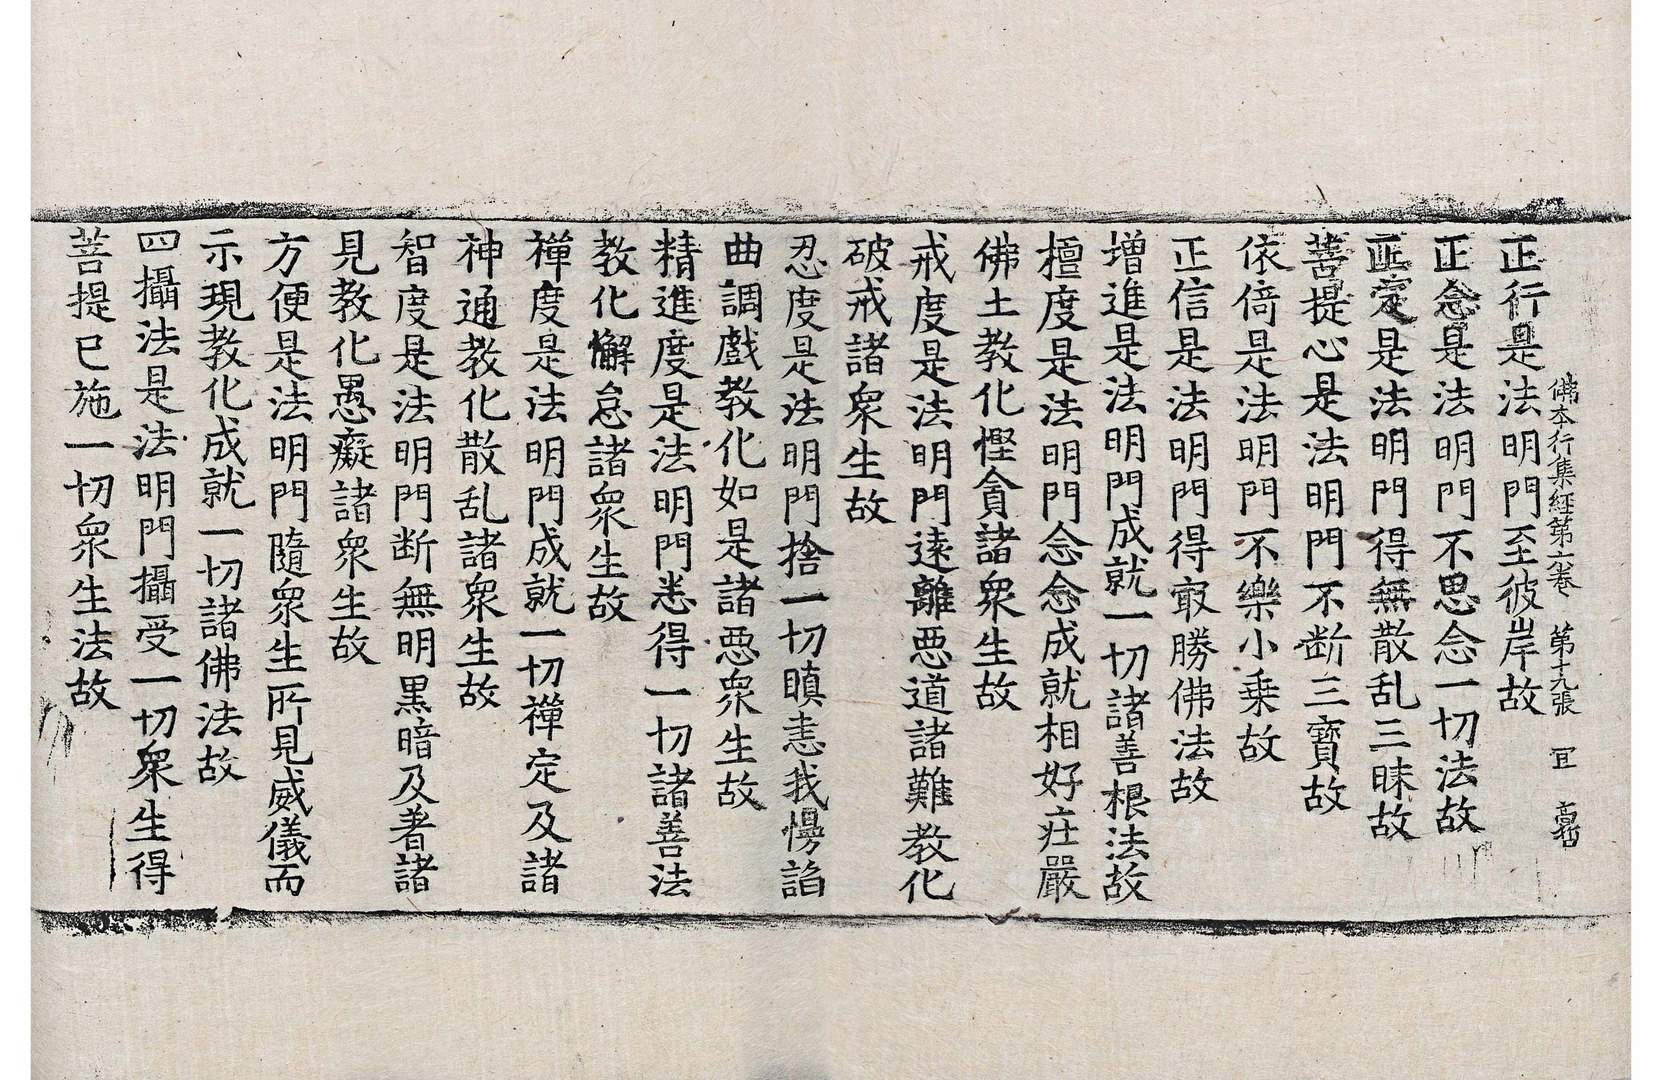 佛本行集經第六卷 第十九張 冝
正行是法明門至彼岸故
正念是法明門不思念一切法故
正定是法明門得無散乱三昧故
菩提心是法明門不断三寶故
依倚是法明門不樂小乗故
正信是法明門得冣勝佛法故
増進是法明門成就一切諸善根法故
檀度是法明門念念成就相好庄嚴
佛土教化慳貪諸衆生故
戒度是法明門逺離惡道諸難教化
破戒諸衆生故
忍度是法明門捨一切瞋恚我慢諂
曲調戲教化如是諸惡衆生故
精進度是法明門悉得一切諸善法
教化懈怠諸衆生故
禪度是法明門成就一切禪定及諸
神通教化散乱諸衆生故
智度是法明門断無明黒暗及著諸
見教化愚癡諸衆生故
方便是法明門隨衆生所見威儀而
示現教化成就一切諸佛法故
四攝法是法明門攝受一切衆生得
菩提已施一切衆生法故